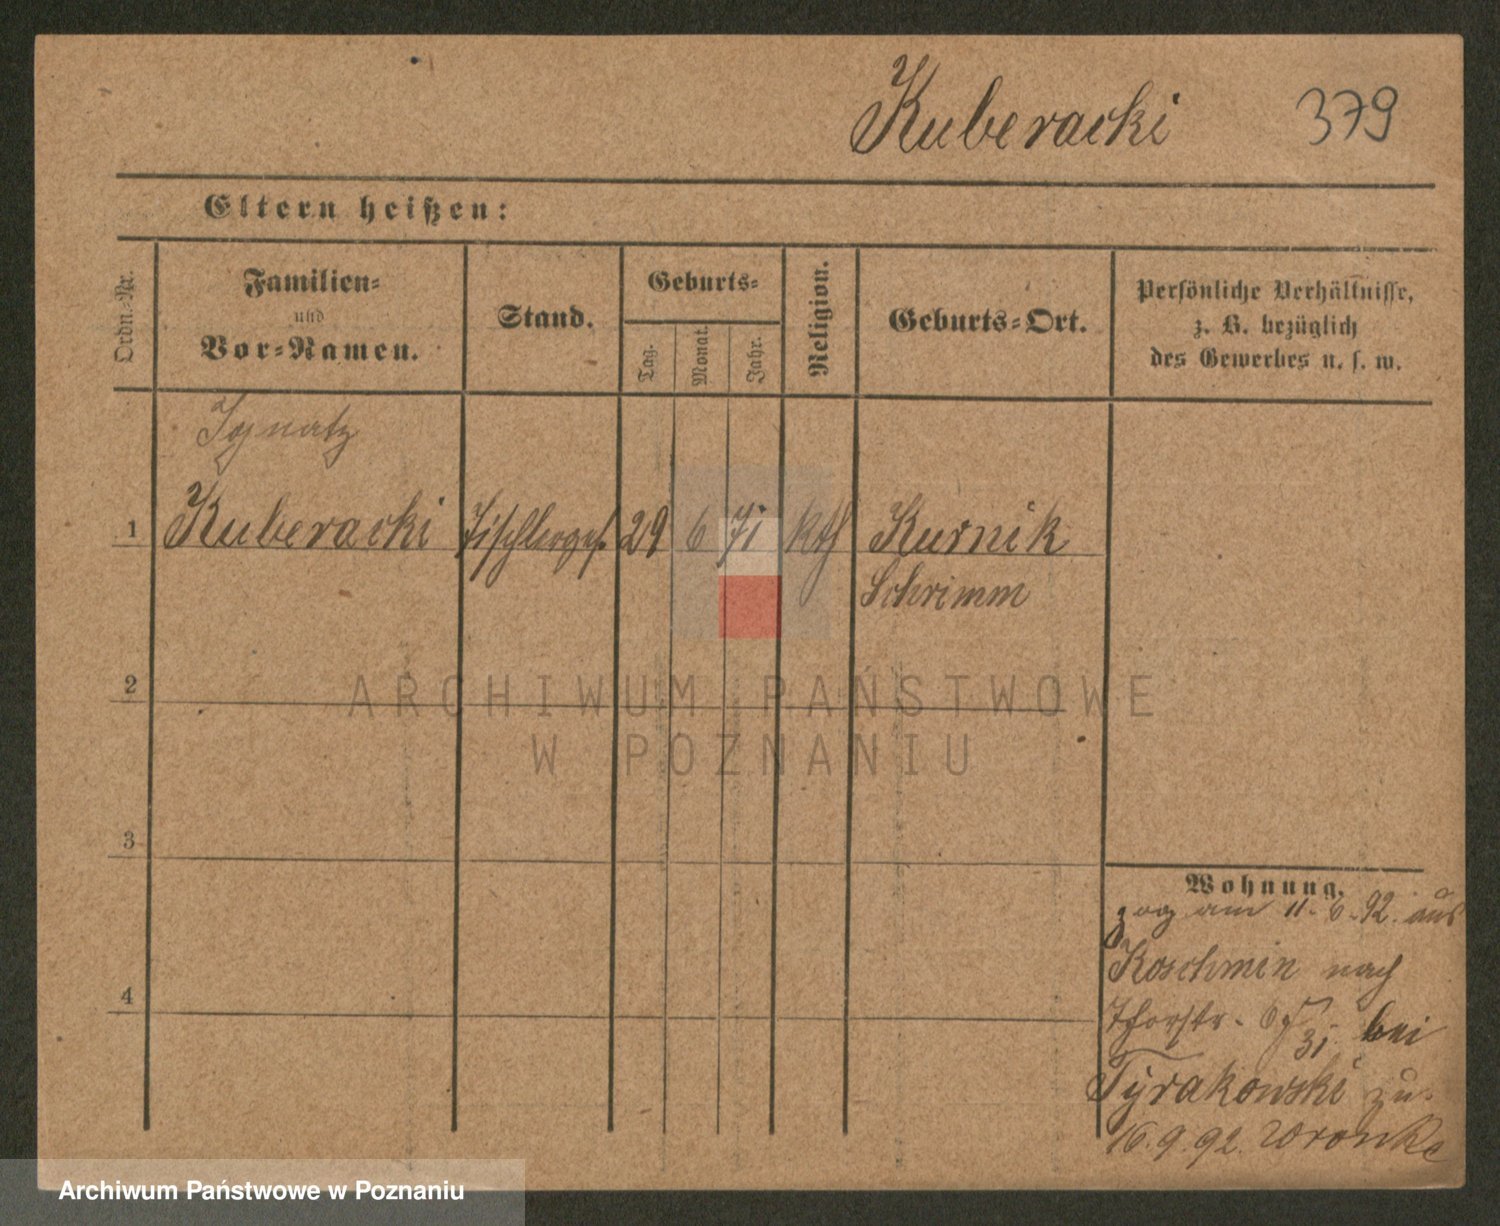 Kuberacki 379
Eltern heißen:
Ordn.-Nr.
Familien-
und
Vor-Namen.
Stand.
Geburts-
Tag.
Monat.
Jahr.
Religion.
Geburts-Ort.
Persönliche Verhältnisse,
z. B. bezüglich
des Gewerbes u. s. w.
Ignatz
1 Kuberacki Tischlerges. 29 6 71 Kth Kurnik
Schrimm
2
3
4
Wohnung.
zog am 11.6.92. aus
Koschmin nach
Thorstr. bei
Tyrakowski
16.9.92. Wronke
ARCHIWUM PAŃSTWOWE
W POZNANIU
Archiwum Państwowe w Poznaniu